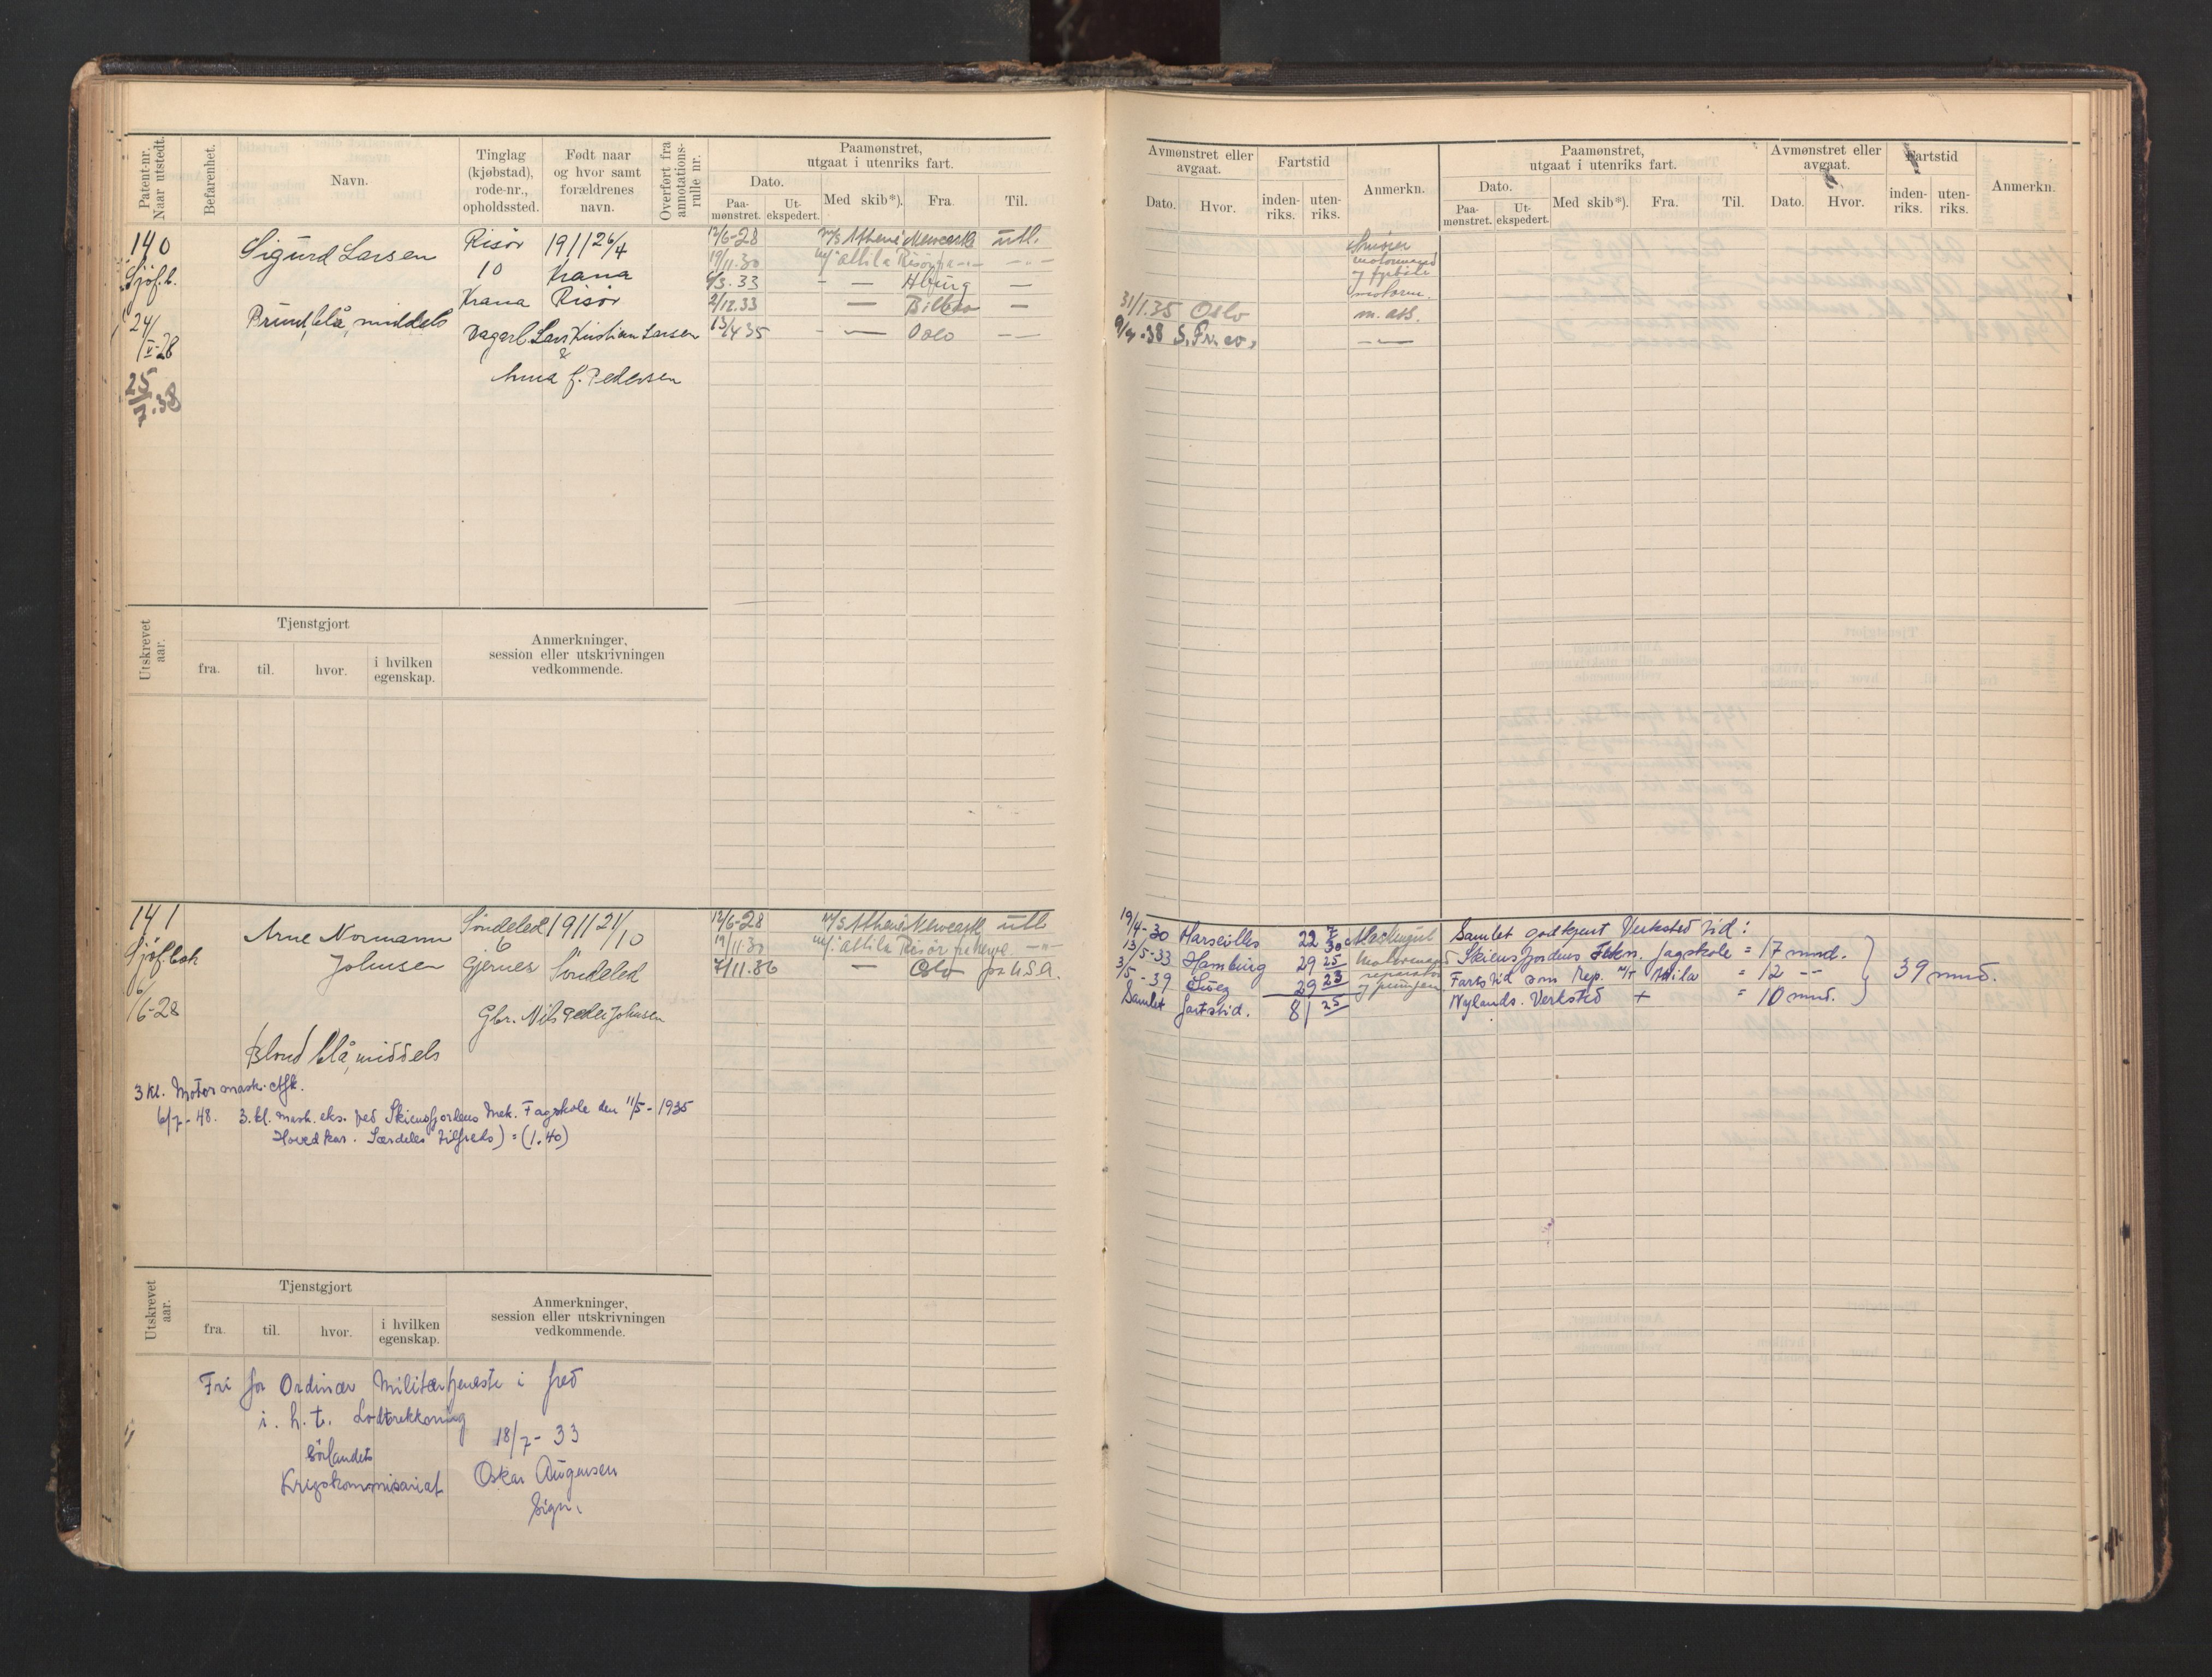 Patent-nr. Naar utstedt.
Befarenhet.
Navn.
Tinglag (kjøbstad), rode-nr., opholdssted.
Født naar og hvor samt forældrenes navn.
Overført fra annotations-rulle nr.
Paamønstret, utgaat i utenriks fart.
Dato.
Paa-mønstret.
Ut-ekspedert.
Med skib*).
Fra.
Til.
Avmønstret eller avgaat.
Dato.
Hvor.
Fartstid
inden-riks.
uten-riks.
Anmerkn.
Paamønstret, utgaat i utenriks fart.
Dato.
Paa-mønstret.
Ut-ekspedert.
Med skib*).
Fra.
Til.
Avmønstret eller avgaat.
Dato.
Hvor.
Fartstid
inden-riks.
uten-riks.
Anmerkn.
140
Sjøf.b.
24/V-28
25/7.38
Sigurd Larsen
Brun, blå, middels
Risør
10
Krana
1911 26/4
Krana
Risør
Dagarb. Lars Kristian Larsen
&
Anna f. Pedersen
12/6-28 m/s Athene Newcastle utl.
19/11.30 m/s Attila Risør
6/3.33 - — Hburg —
2/12.33 — Bilbao —
13/4 35 - — Oslo — —
31/1.35 Oslo
9/4.38 S.Fr.co.
motormand
og fyrbøter
motorm.
m. ass.
— " —
Utskrevet aar.
Tjenstgjort
fra.
til.
hvor.
i hvilken egenskap.
Anmerkninger, session eller utskrivningen vedkommende.
141
Sjøf.bok
6/6-28
Arne Normann
Johnsen
Blond blå, middels
Søndeled
6
Gjernes
1911 21/10
Søndeled
Gbr. Nils Peder Johnsen
12/6-28 m/s Athene Newcastle utl
19/11.30 m/s Attila Risør
7/11.36 — Oslo for U.S.A.
3 kl. Motor mask.
6/7-48. 3. kl. mask. eks. ved Skiensfjordens Mek. Fagskole den 11/5-1935
Hovedkar. Særdeles tilfreds) = (1.40)
19/4-30 Marseilles 22 7/30
13/5-33 Hamburg 29 25/30 Motormand
3/5-39 Suez 29 23 reparatør
Samlet fartstid. 81 25
Samlet godkjent Verksted tid:
Skiensfjordens Fagskole = 17 mnd.
Fartstid som Rep. M/T Attila = 12 --
Nylands. Verksted + = 10 mnd.
39 mnd.
Utskrevet aar.
Tjenstgjort
fra.
til.
hvor.
i hvilken egenskap.
Anmerkninger, session eller utskrivningen vedkommende.
Fri for Ordinær Militærtjeneste i fred
i. h. t. Lodtrekkning
Sørlandets 18/7-33
Krigskommisariat Oskar Augensen
Sign.